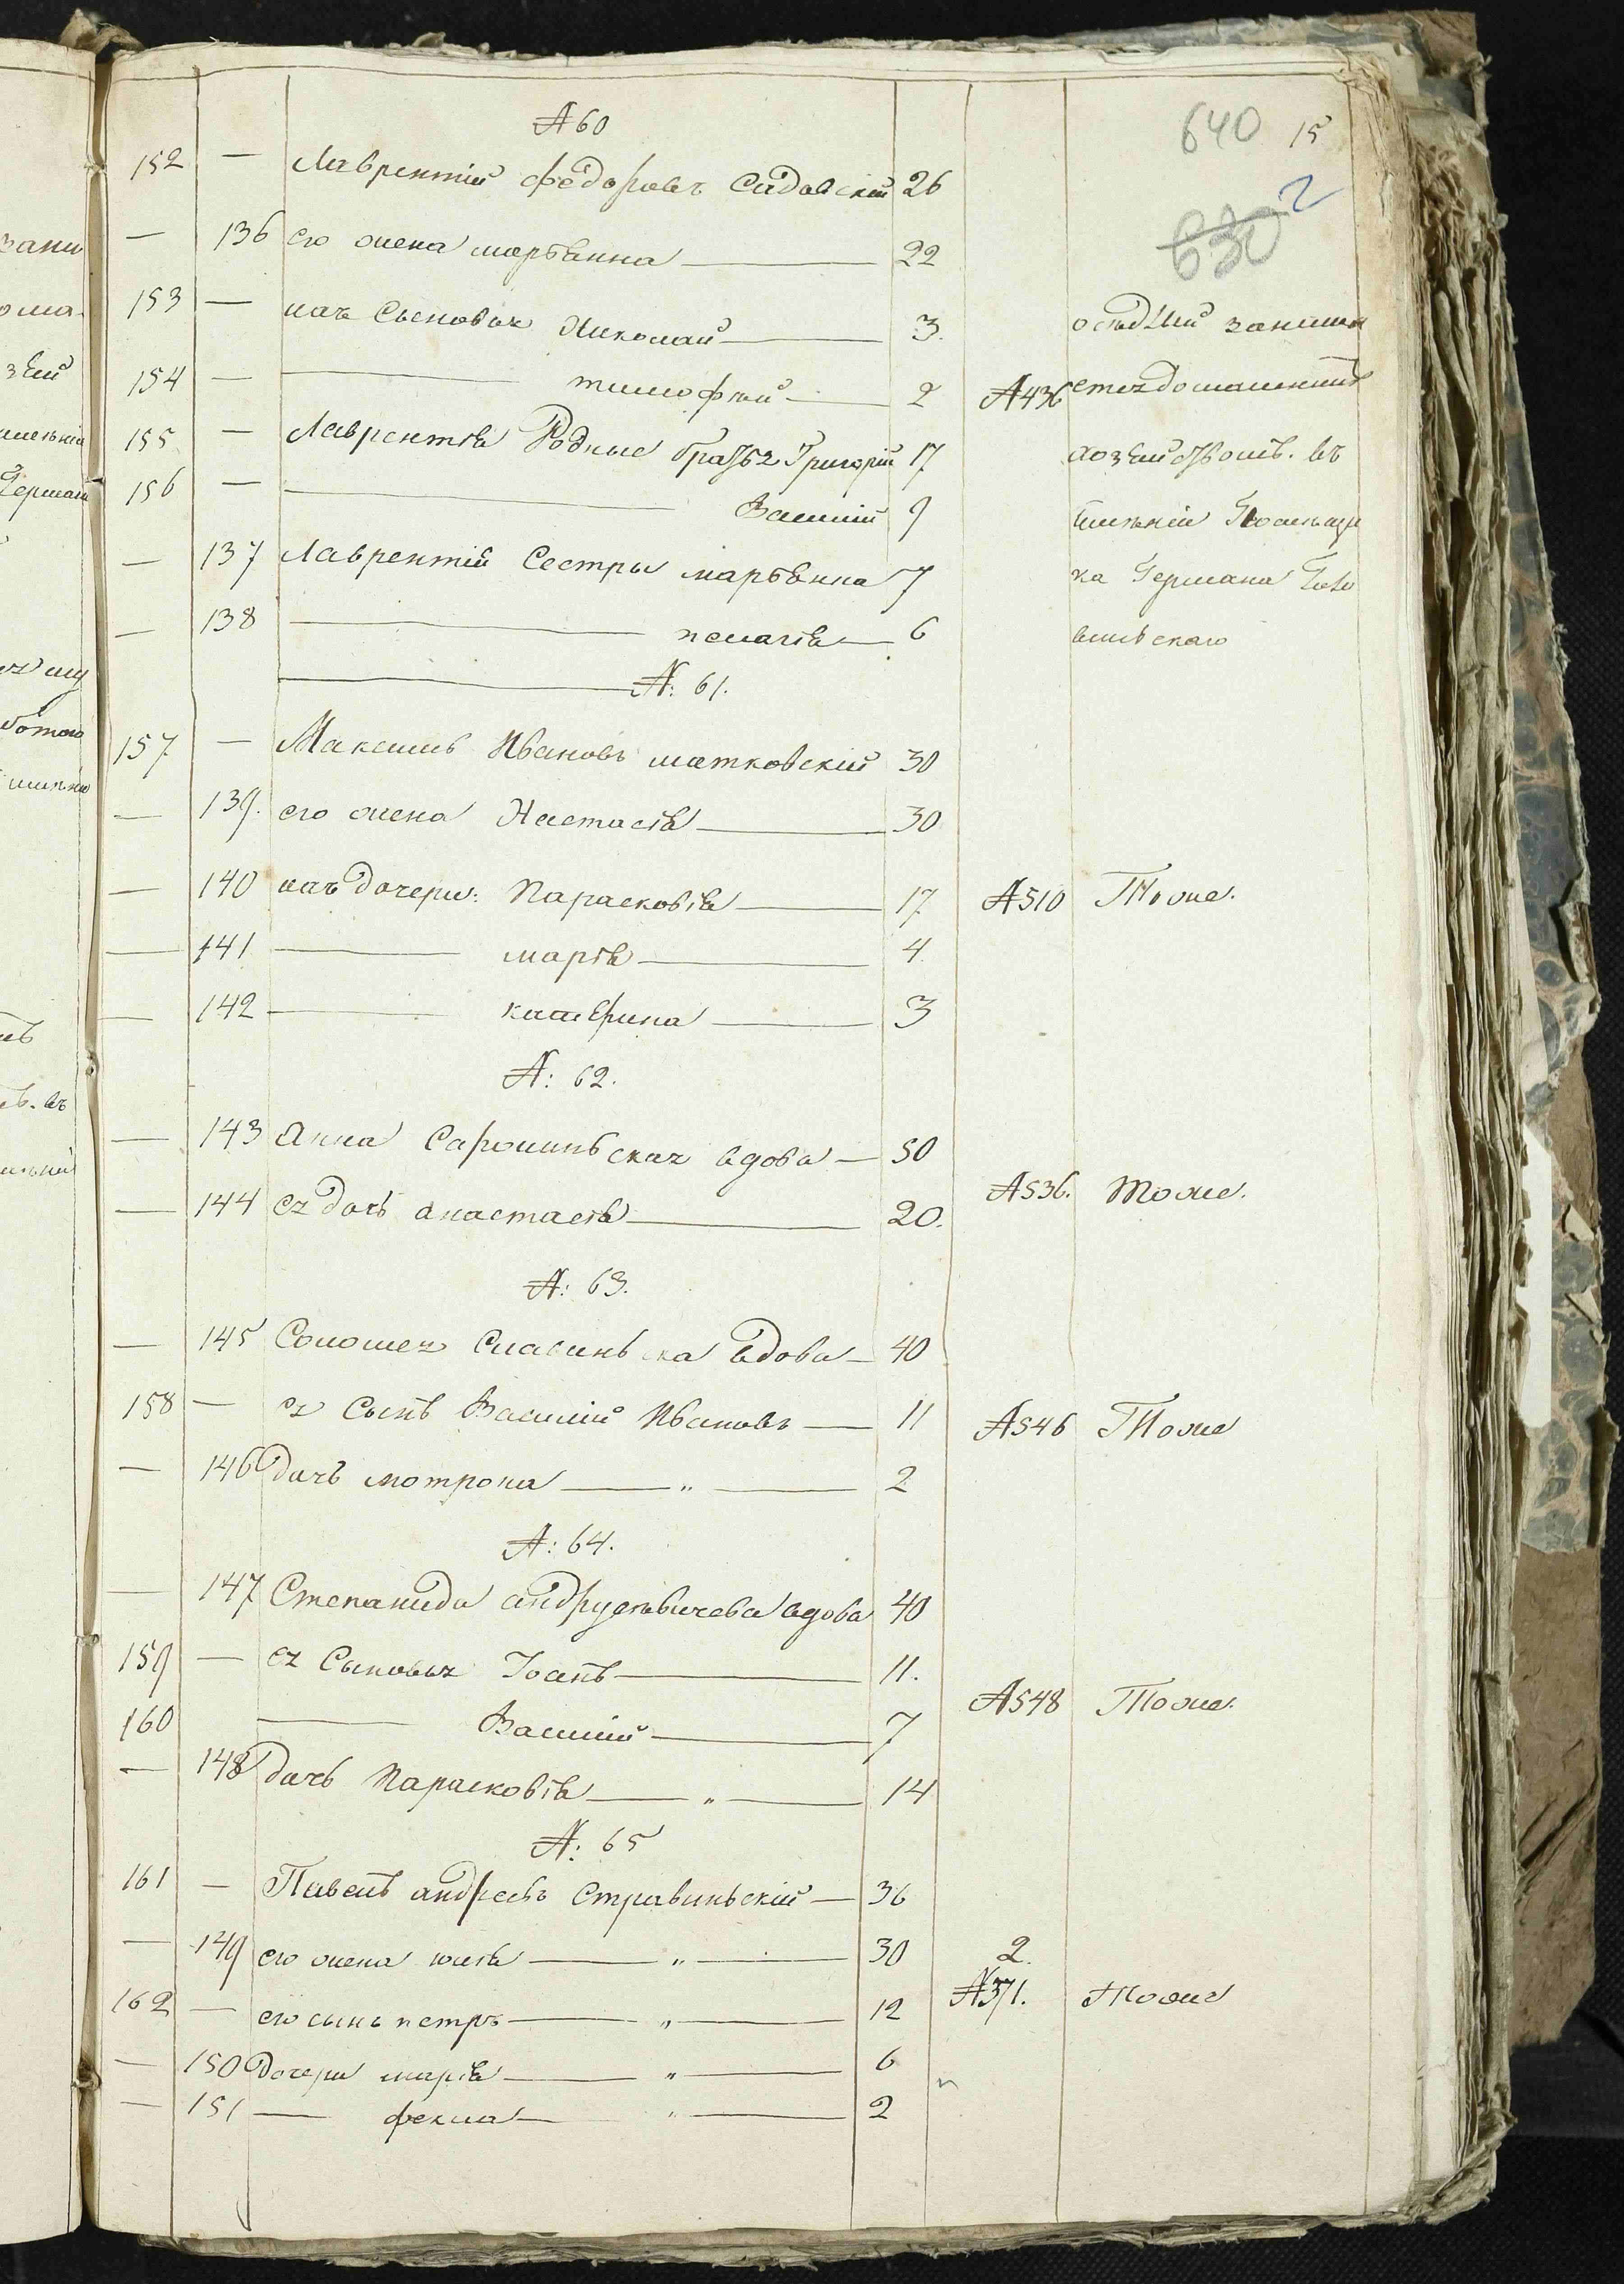 640 15
2
630
№ 60
152 — Лаврентій Федоровъ Садовскій 26
— 136 его жена Маріанна — 22
153 — ихъ Сыновья Николай — 3.
154 — — тимофей — 2 №436
155 — Лаврентія Родные братья Григорій 17
156 — — Василій 9
— 137 Лаврентія Сестры маріанна 7
— 138 — пелагія — 6
осѣдлый занима
ется домашнимъ
хозяйствомъ. въ
имѣніи Помѣщи
ка Германа
№: 61.
157 — Максимъ Ивановъ матковскій 30
— 139. его жена Настасія — 30
— 140 ихъ дочери: Парасковія — 17 №510 Тоже.
— 141 — марія — 4
— 142 — катерина — 3
№: 62.
— 143 Анна вдова — 50
— 144 ея дочь анастасія — 20. №536. Тоже.
№: 63.
— 145 Соломея вдова — 40
158 — ея Сынъ Василій Ивановъ — 11 №546 Тоже
— 146 дочь мотрона — „ — 2
№: 64.
— 147 Степанида андрусевичева вдова 40
159 — ея Сыновья Іоанъ — 11.
160 — Василій — 7 №548 Тоже.
— 148 дочь Парасковія — „ — 14
№: 65
161 — Павелъ андреевъ Стравиньскій — 36
— 149 его жена юлія — „ — 30 2.
162 — его сынъ петръ — „ — 12 №371. Тоже
— 150 дочери марія — „ — 6
— 151 — фекла — „ — 2